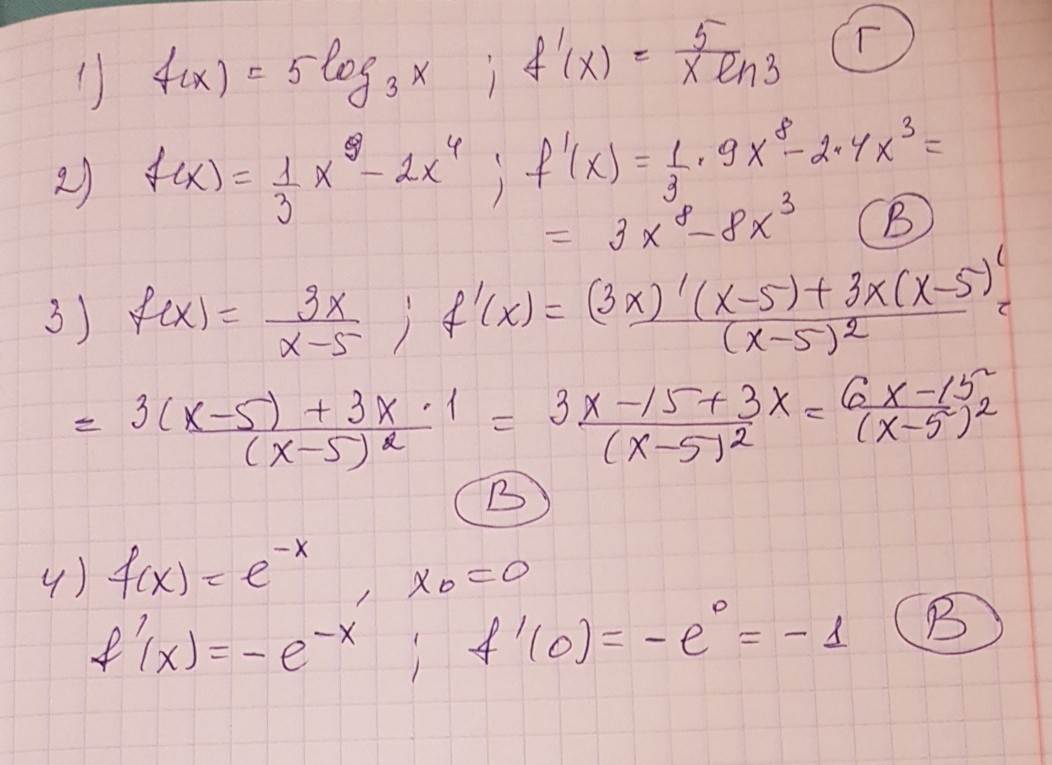 1) f(x) = 5 log₃ x ; f'(x) = 5/(x ln3) Г
2) f(x) = 1/3 x⁹ - 2x⁴ ; f'(x) = 1/3 · 9x⁸ - 2·4x³ =
= 3x⁸ - 8x³ В
3) f(x) = 3x/(x-5) ; f'(x) = ((3x)'(x-5) + 3x(x-5)')/(x-5)² =
= (3(x-5) + 3x · 1)/(x-5)² = (3x - 15 + 3x)/(x-5)² = (6x - 15)/(x-5)²
В
4) f(x) = e⁻ˣ , x₀ = 0
f'(x) = -e⁻ˣ ; f'(0) = -e⁰ = -1 В